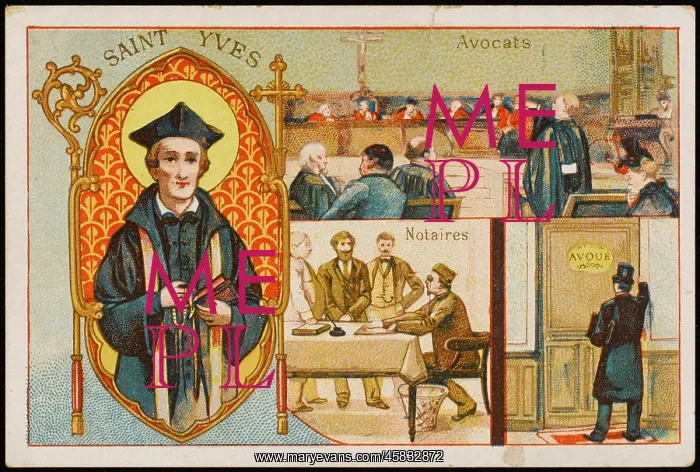 SAINT YVES
Avocats
Notaires
AVOUÉ
ME
PL
ME
PL
www.maryevans.com/45832872